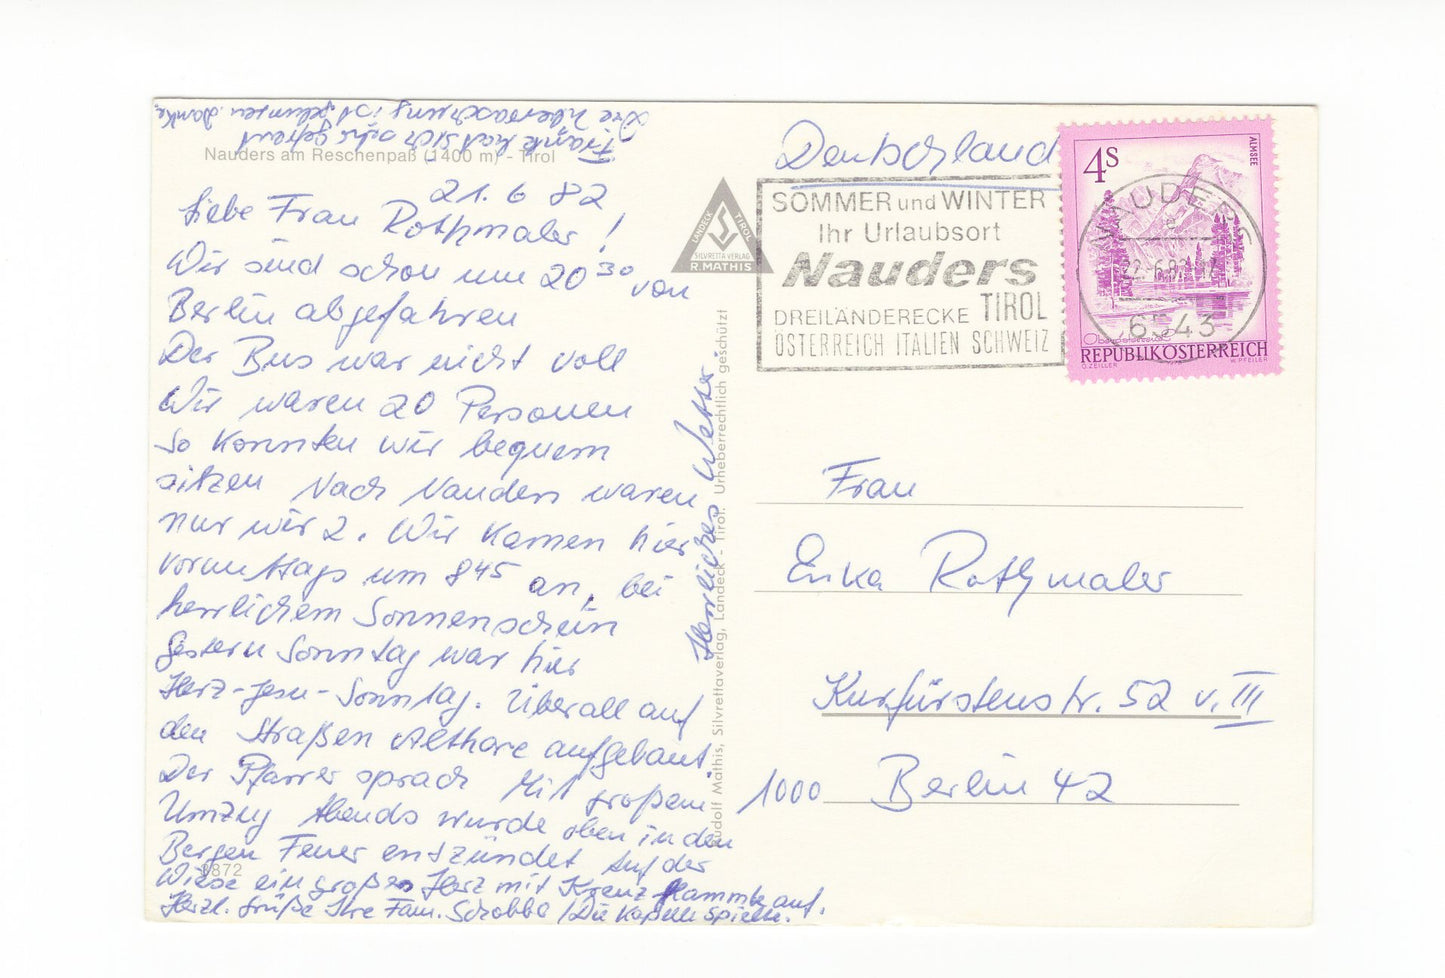 Nauders am Reschenpaß (1400 m) - Tirol
21. 6 82
Liebe Frau Rothmaler!
Wir sind schon um 20 30 von
Berlin abgefahren
Der Bus war nicht voll
Wir waren 20 Personen
So konnten wir bequem
sitzen Nach Nauders waren
nur wir 2. Wir kamen hier
vormittags um 8 45 an, bei
herrlichem Sonnenschein
Gestern Sonntag war hier
Herz-Jesu-Sonntag. Überall auf
den Straßen Althare aufgebaut.
Der Pfarrer sprach Mit großem
Umzug Abends wurde oben in den
Bergen Feuer entzündet Auf der
Wiese ein großes Herz mit Kreuz flammte auf.
Herzl. Grüße Ihre Fam. Schobbe / Die Kapelle spielte.
Herrliches Wetter.
hat sich sehr gefreut
Die Überraschung ist gelungen. Danke,
3872
LANDECK TIROL
SILVRETTA VERLAG
R. MATHIS
Rudolf Mathis, Silvrettaverlag, Landeck - Tirol. Urheberrechtlich geschützt
Deutschland
SOMMER und WINTER
Ihr Urlaubsort
Nauders
TIROL
DREILÄNDERECKE
ÖSTERREICH ITALIEN SCHWEIZ
4S
ALMSEE
NAUDERS
22.-6.82
6543
Oberösterreich
REPUBLIK ÖSTERREICH
O. ZEILLER
W. PFEILER
Frau
Erika Rothmaler
Kurfürstenstr. 52 v. III
1000 Berlin 42